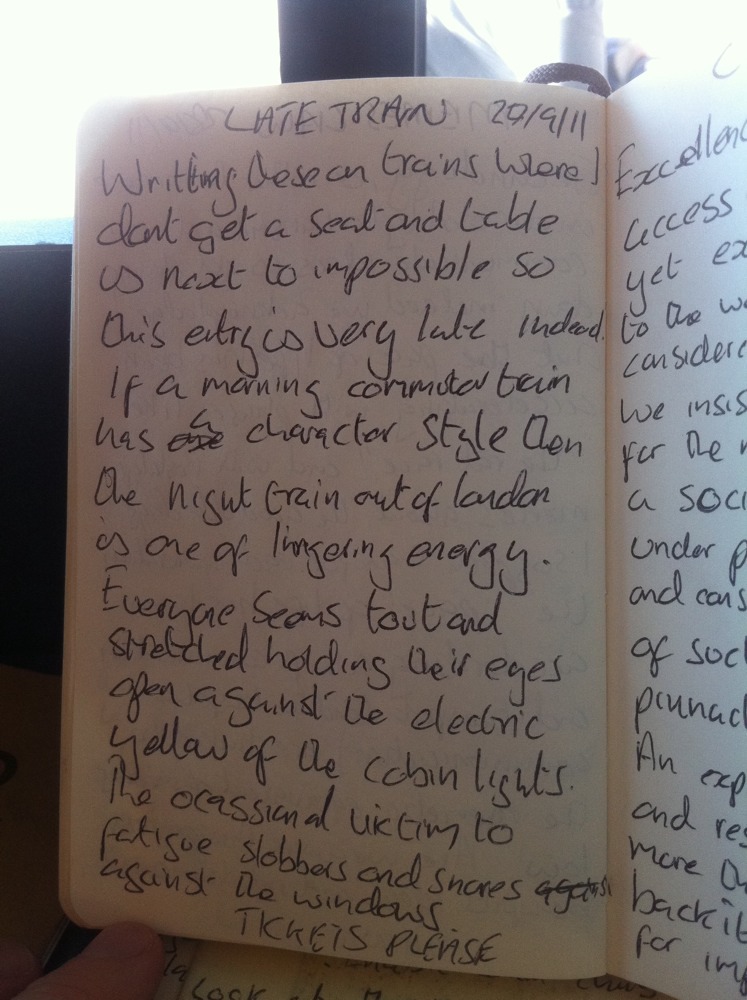 LATE TRAIN 20/9/11
Writting these on trains where I
dont get a seat and table
is next to impossible so
this entry is very late indeed.
If a morning commuter train
has a character style then
the night train out of london
is one of lingering energy.
Everyone seems tout and
stretched holding their eyes
open against the electric
yellow of the cabin lights.
The ocassional victim to
fatigue slobbers and snores against
against the windows
TICKETS PLEASE
Excellenc
access
yet ex
to the w
considere
We insis
for the
a soci
under p
and cons
of soci
pinnac
An exp
and res
more th
back it
for imp